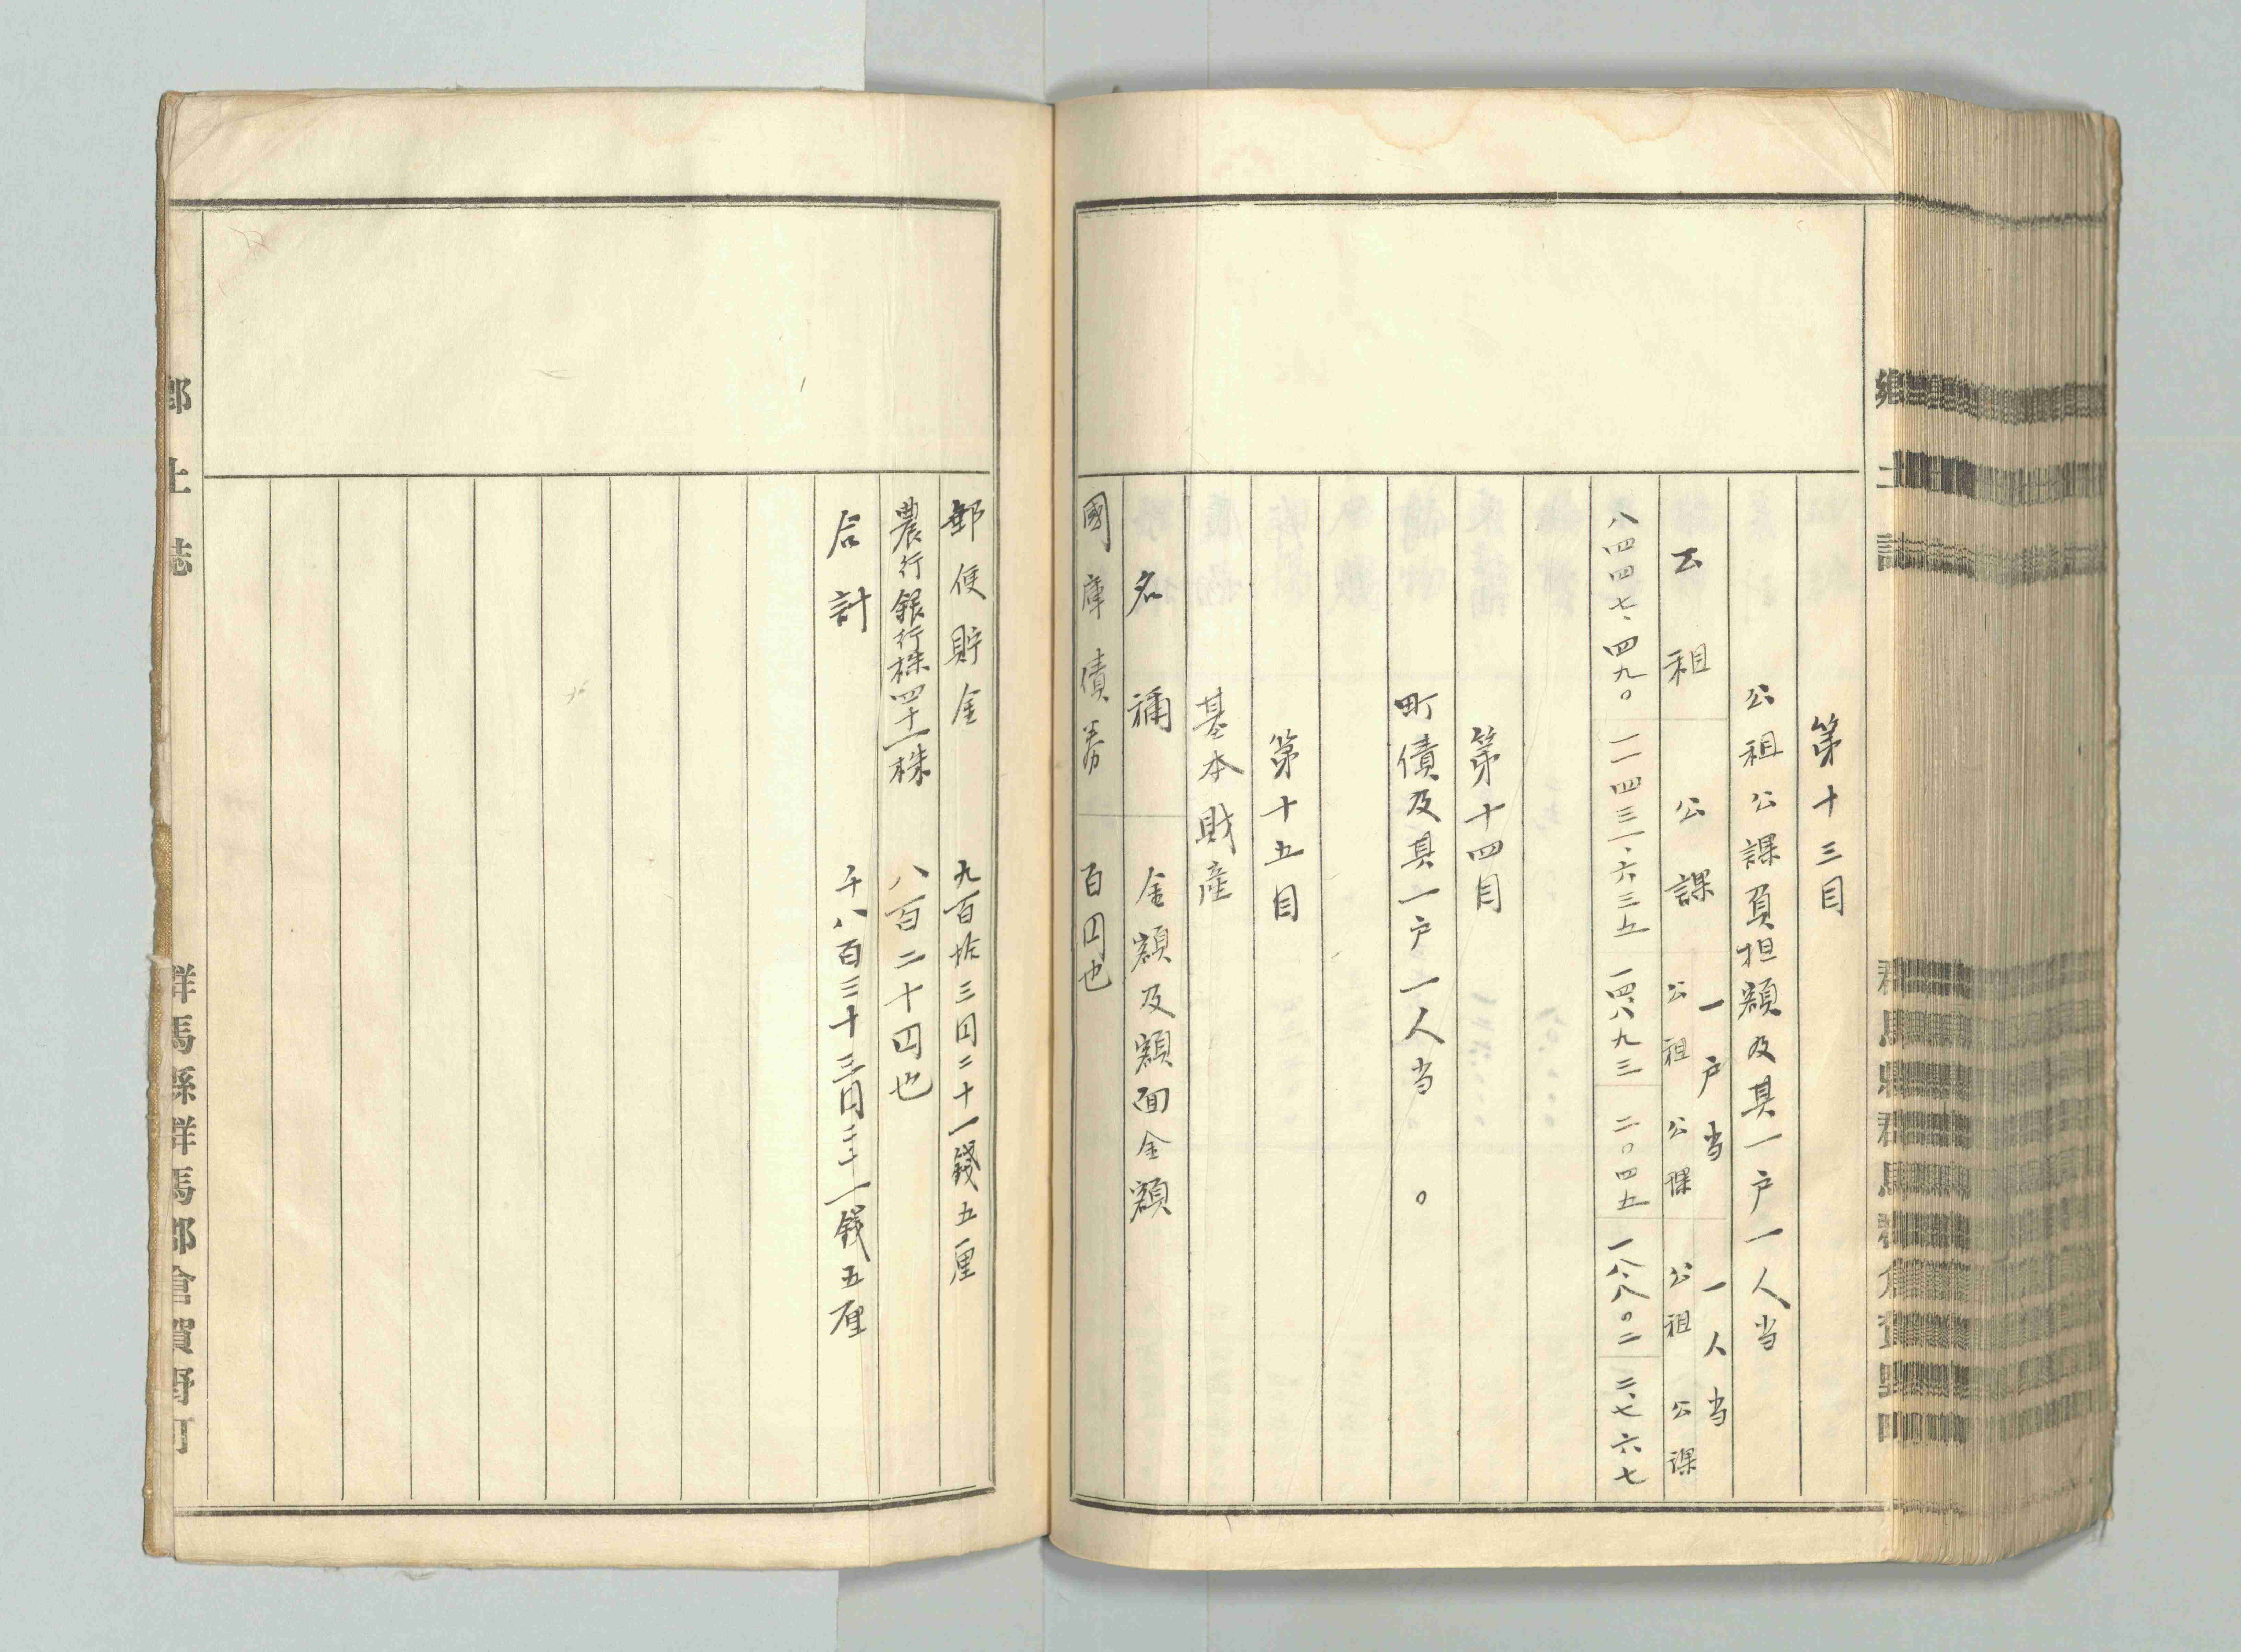 郷土誌
第十三目
公租公課負担額及其一戸一人当
公租
公課
一戸当
公租
公課
一人当
公租
公課
八四四七、四九〇
一四、八九三
二〇四五
一八、八〇二
二、七六七
第十四目
町債及其一戸一人当 。
第十五目
基本財産
名称
金額及額面金額
國庫債券 百円也
郵便貯金 九百拾三円二十一錢五厘
農行銀行株四十一株 八百二十円也
合計 千八百三十三円二十一錢五厘
郷土誌
群馬縣群馬郡倉賀野町